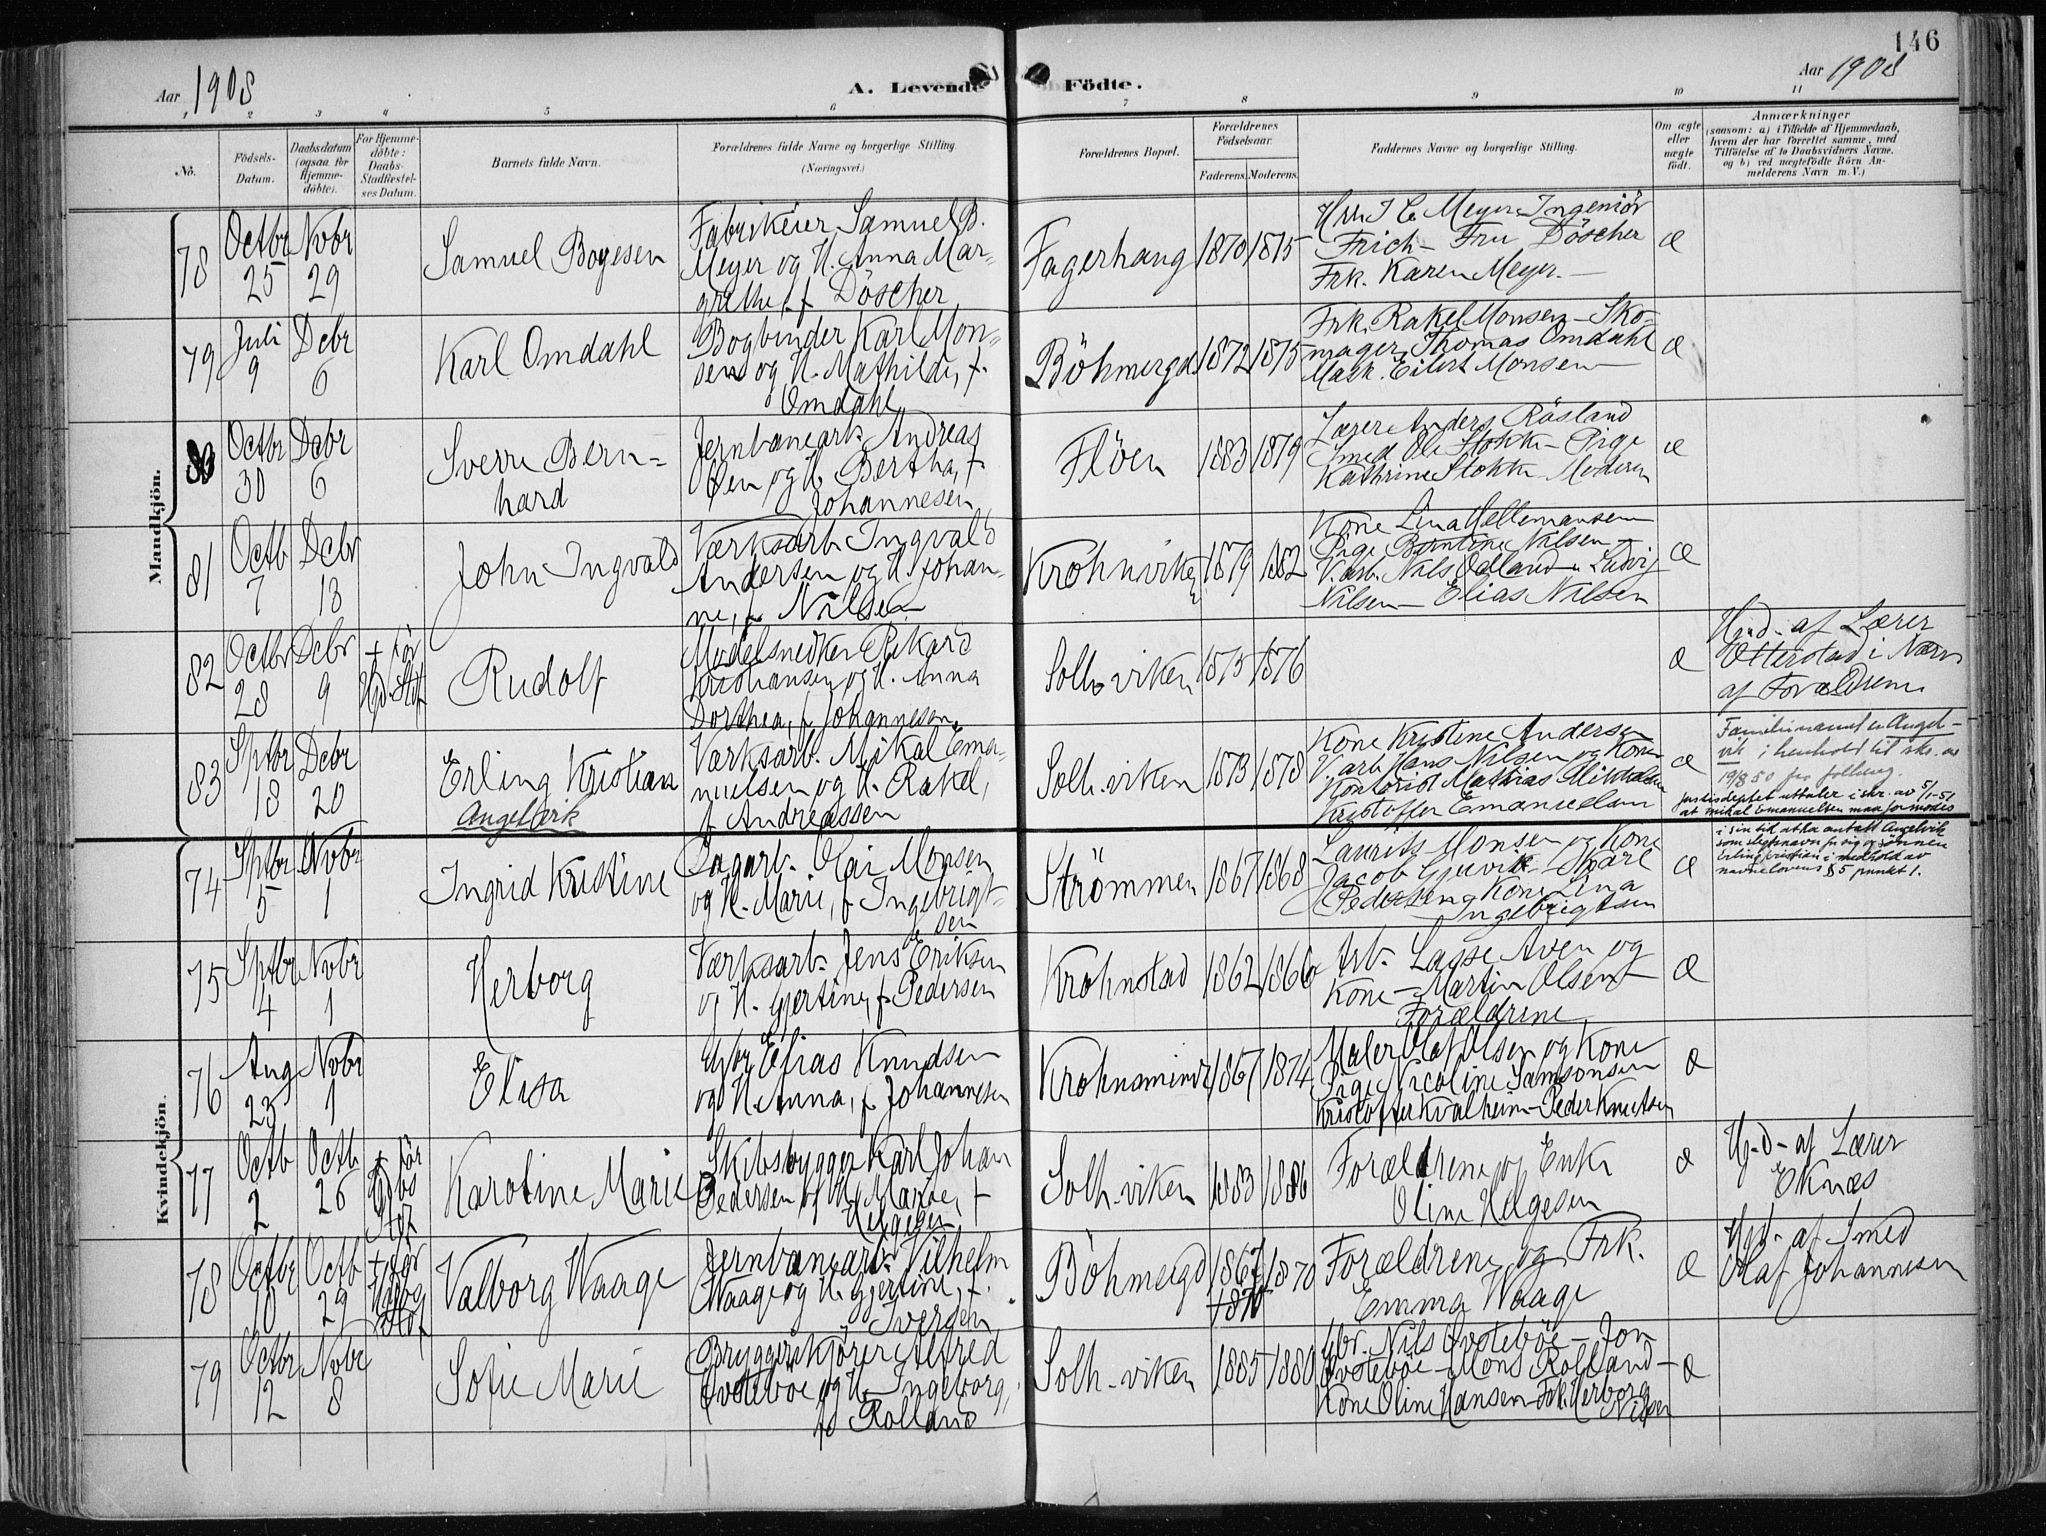 146
Aar 1908
A. Levende Födte.
Aar 1908
1 2 3 4 5 6 7 8 9 10 11
No.
Födsels-Datum.
Daabsdatum (ogsaa for Hjemme-döbte).
For Hjemme-döbte: Daabs-Stadfæstel-ses Datum.
Barnets fulde Navn.
Forældrenes fulde Navne og borgerlige Stilling. (Næringsvei.)
Forældrenes Bopæl.
Forældrenes Födselsaar.
Faderens. Moderens.
Faddernes Navne og borgerlige Stilling.
Om ægte eller uægte födt.
Anmærkninger
(saasom: a) i Tilfælde af Hjemmedaab,
hvem der har forrettet samme, med
Tilföielse af to Daabsvidners Navne.
og b) ved uegtefödte Börn An-
melderens Navn m. V.)
Mandkjön.
78 Octbr 25 Novbr 29 Samuel Boyesen
Fabrikeier Samuel B.
Meyer og H. Anna Mar-
grethe f. Döscher
Fagerhaug 1870 1875
Hrr. I C Meyer Ingeniör
Frich - Fru Döscher
Frk. Karen Meyer.
æ
79 Juli 9 Debr 6 Karl Omdahl
Bogbinder Karl Mon-
sen og H. Mathilde, f.
Omdahl
Böhmergd 1872 1875
Frk. Rakel Monsen - Sko-
mager Thomas Omdahl
Mask. Eilert Monsen
æ
80 Octbr 30 Debr 6 Sverre Bern-
hard
Jernbanearb. Andreas
Öen og H. Bertha, f
Johannesen
Flöen 1883 1879
Lærer Anders Rösland
Smed Ole Stokke - Pige
Kathrine Stokke Moderen
æ
81 Octb 7 Debr 13 John Ingvald
Værksarb. Ingvald
Andersen og H. Johan-
ne, f. Nilsen
Krohnviken 1879 1882
Kone Lina Hellemansen
Pige Berntine Nilsen -
V.arb. Nils Odland - Ludvig
Nilsen - Elias Nilsen
æ
82 Octbr 28 Debr 9 † för Hjd. Stf Rudolf
Modelsnedker Rikard
Kristiansen og H. Anna
Dorthea, f. Johannesen
Solh. viken 1875 1876
æ
Hjd. af Lærer
Otterstad i Nærv
af Forældrene
83 Septbr 18 Debr 20 Erling Kristian
Angelvik
Værksarb. Mikal Ema-
nuelsen og H. Rakel,
f Andreassen
Solh. viken 1873 1878
Kone Kristine Andersen
V.arb Hans Nilsen og Kone
Kontorist Mathias Mikkelsen
Kristoffer Emanuelsen
æ
Familienavnet er Angel-
vik i henhold til skr. av
19/8 50 fra fylkesmg.
Justisdeptet uttaler i skr. av 5/1-51
at Mikal Emanuelsen maa formodes
i sin tid at ha antatt Angelvik
som slegtsnavn for sig og sönnen
Erling Kristian i medhold av
navnelovens § 5 punkt 1.
Kvindekjön.
74 Septbr 5 Novbr 1 Ingrid Kristine
Dagarb. Olai Monsen
og H. Marie, f Ingebrigt-
sen
Strömmen 1867 1868
Laurits Monsen og Kone
Jacob Gjervik - Karl
Pedersen Kone Lina
Ingebrigtsen
æ
75 Septbr 4 Novbr 1 Herborg
Værksarb. Jens Eriksen
og H. Gjertine, f Pedersen
Krohnstad 1862 1866
Arb. Lasse Aven og
Kone - Martin Olsen
Forældrene
æ
76 Aug 23 Novbr 1 Elisa
Arbr Elias Knudsen
og H. Anna, f Johannesen
Krohnsminde 1867 1874
Maler Olaf Olsen og Kone
Pige Nicoline Samsonsen
Kristoffer Kvalheim - Peder Knutsen
æ
77 Octb 2 Octb 26 † för Stf Karoline Marie
Skibsbygger Karl Johan
Pedersen og H. Marie, f
Helgesen
Solh. viken 1883 1886
Forældrene og Enke
Oline Helgesen
æ
Hj-d- af Lærer
Eknæs
78 Octbr 10 Octb 29 † för Stf Valborg Waage
Jernbanearb. Vilhelm
Waage og H. Gjertine, f.
Iversen
Böhmergd 1867 1870
1870
Forældrene og Frk.
Emma Waage
æ
Hjd. af Smed
Olaf Johannesen
79 Octbr 12 Novbr 8 Sofie Marie
Bryggerikjörer Alfred
Övsteböe og H. Ingeborg,
f. Rolland
Solh. viken 1885 1880
Gbr. Nils Övsteböe - Jon
Övsteböe - Mons Rolland -
Kone Oline Hansen - Frk. Herborg
Nilsen
æ